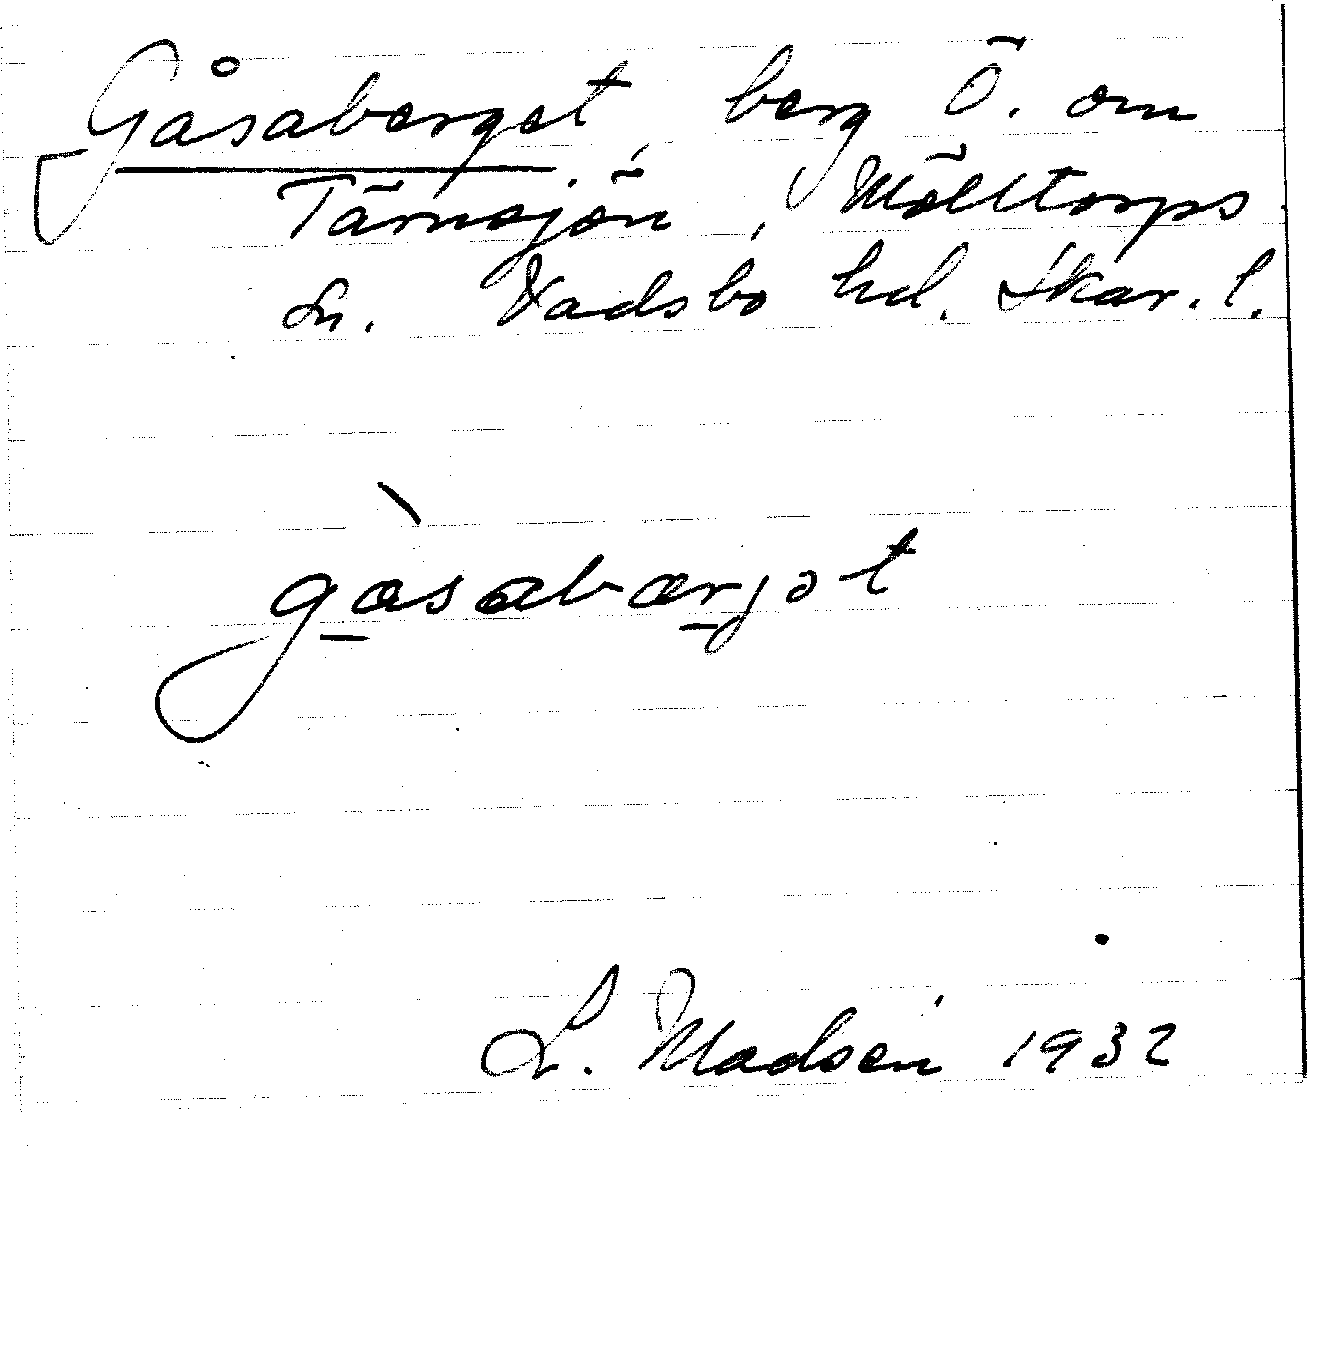 Gåsaberget, berg Ö. om
Tärnsjön, Mölltorps
sn. Vadsbo hd. Skar. l.
gàsabærjət
L. Madsén 1932